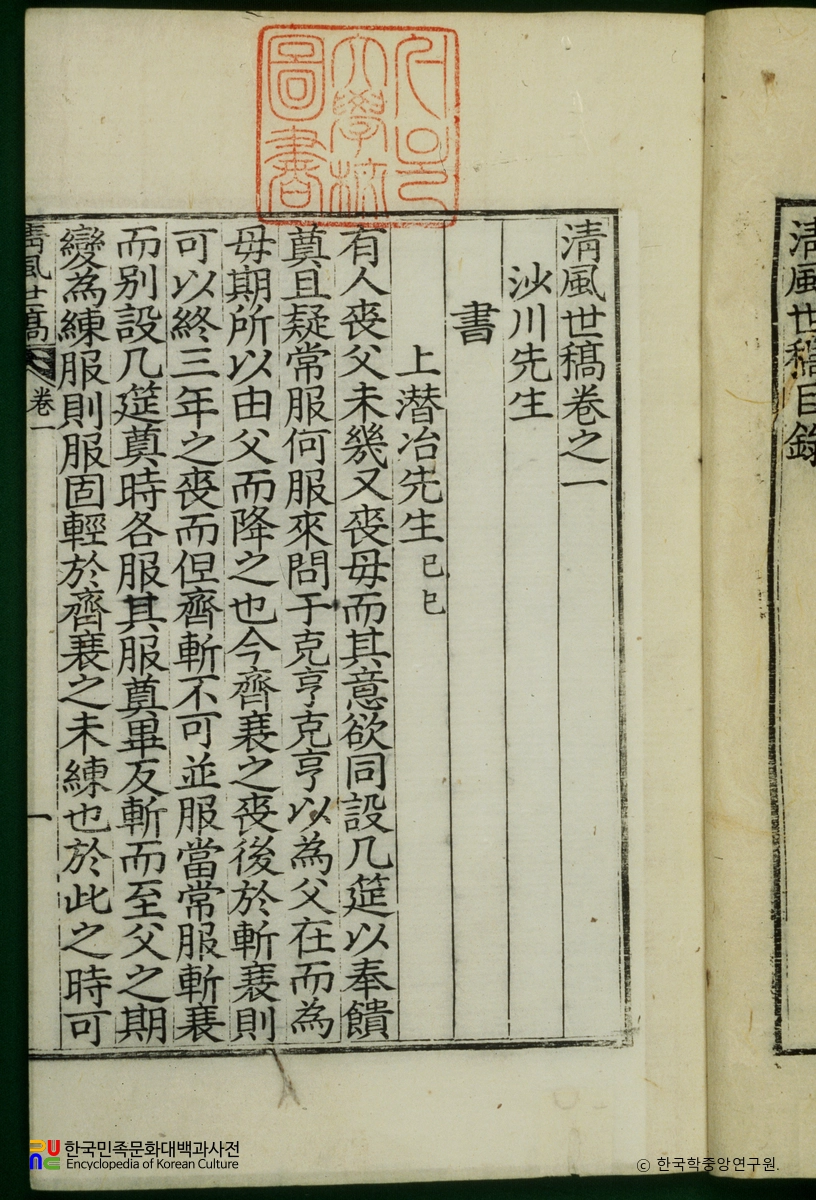 淸風世稿卷之一
沙川先生
書
上潛冶先生 己巳
有人喪父未幾又喪母而其意欲同設几筵以奉饋
奠且疑常服何服來問于克亨克亨以為父在而為
母期所以由父而降之也今齊衰之喪後於斬衰則
可以終三年之喪而但齊斬不可並服當常服斬衰
而別設几筵奠時各服其服奠畢反斬而至父之期
變為練服則服固輕於齊衰之未練也於此之時可
淸風世稿 卷一 一
淸風世稿目錄
大學校
圖書
한국민족문화대백과사전
Encyclopedia of Korean Culture
ⓒ 한국학중앙연구원.